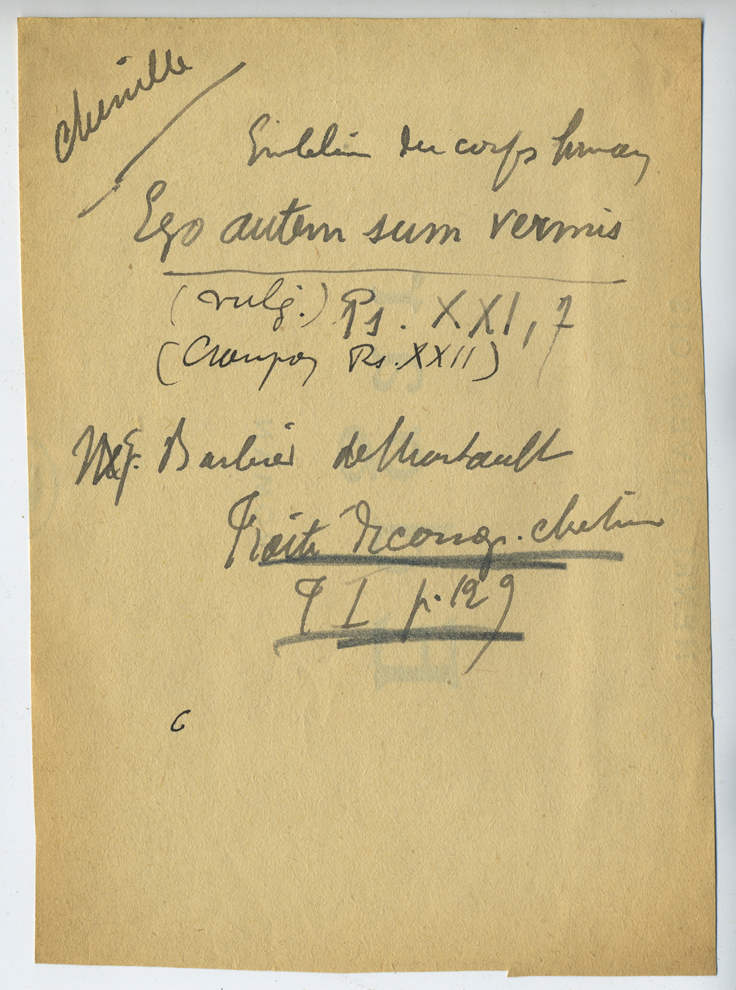 Chenille
Emblème du corps humain
Ego autem sum vermis
(vulg.) Ps. XXI, 7
(Crampon Ps. XXII)
Mgr. Barbier de Montault
Traité Iconog. chrétien
T I p. 129
6